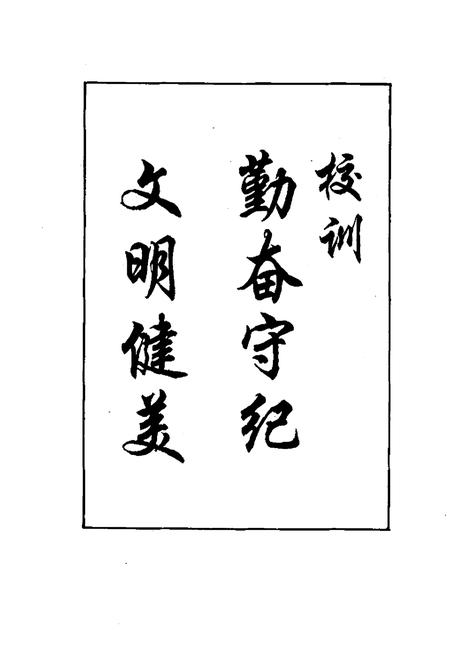 校训
勤奋守纪
文明健美